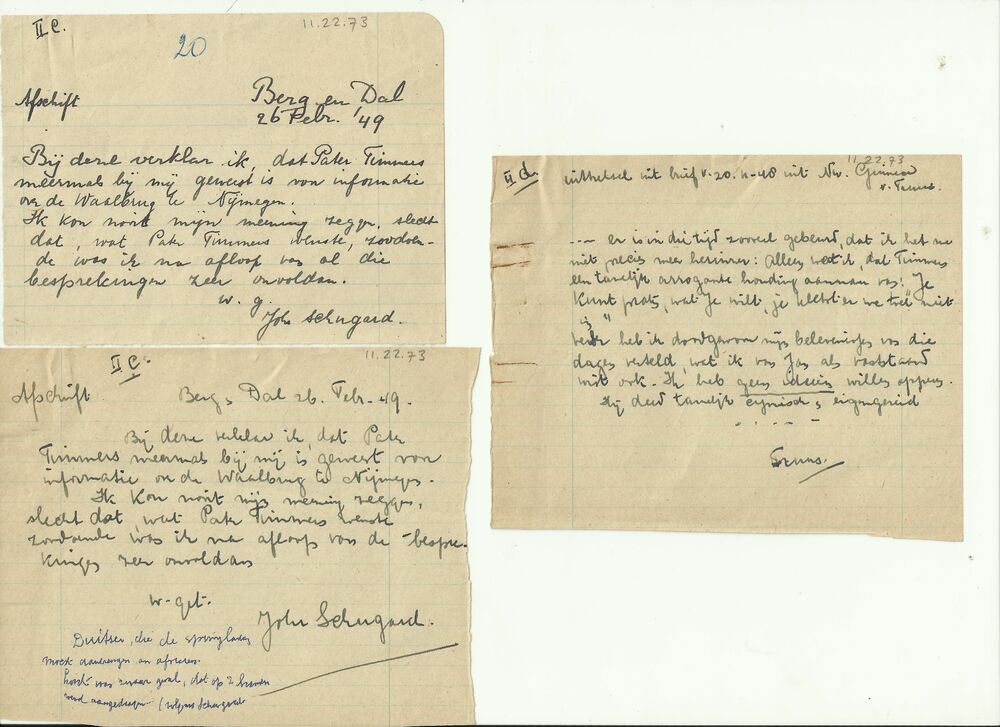 II C.
11.22.73
20
Afschrift
Berg en Dal
26 Febr. '49
Bij deze verklar ik, dat Pater Timmers
meermals bij mij geweest is von informatie
ov de Waalbrug te Nijmegen.
Ik kon nooit mijn meening zeggen, slecht
dat, wat Pater Timmers wenste, zoodoen-
de was ik na afloop van al die
besprekingen zeer onvoldan.
w. g.
John Schugard.
II C.
11.22.73
Afschrift
Berg, Dal 26. Febr. -49.
Bij deze verklar ik, dat Pater
Timmers meermals bij mij is geweest von
informatie ov de Waalbrug te Nijmegen.
Ik kon nooit mijn meening zeggen,
slecht dat, wat Pater Timmers wenste
zoodoende was ik na afloop van de bespre-
kingen zeer onvoldan
w. get.
John Schugard.
Duitser, die de springlading
moest aanbrengen en
was zwaar geval, dat op 2
werd aangedragen (volgens Schugard
II d.
11.22.73
uittreksel uit brief v. 20. 11-48 uit Nw. Guinea
v. Teunis.
--- er is in die tijd zooveel gebeurd, dat ik het nu
niet precies meer herinner. Alleen weet ik, dat Timmers
een tamelijk arrogante houding aannam van: "Je
kunt praten, wat je wilt, je hier we toch niet
"
heb ik doodgewoon mijn belevenisjes van die
dagen verteld, wat ik van Jan als vaststaand
wist ook. Ik heb geen willen opperen.
Hij deed tamelijk cynisch, eigengereid
- - - -
Teunis.